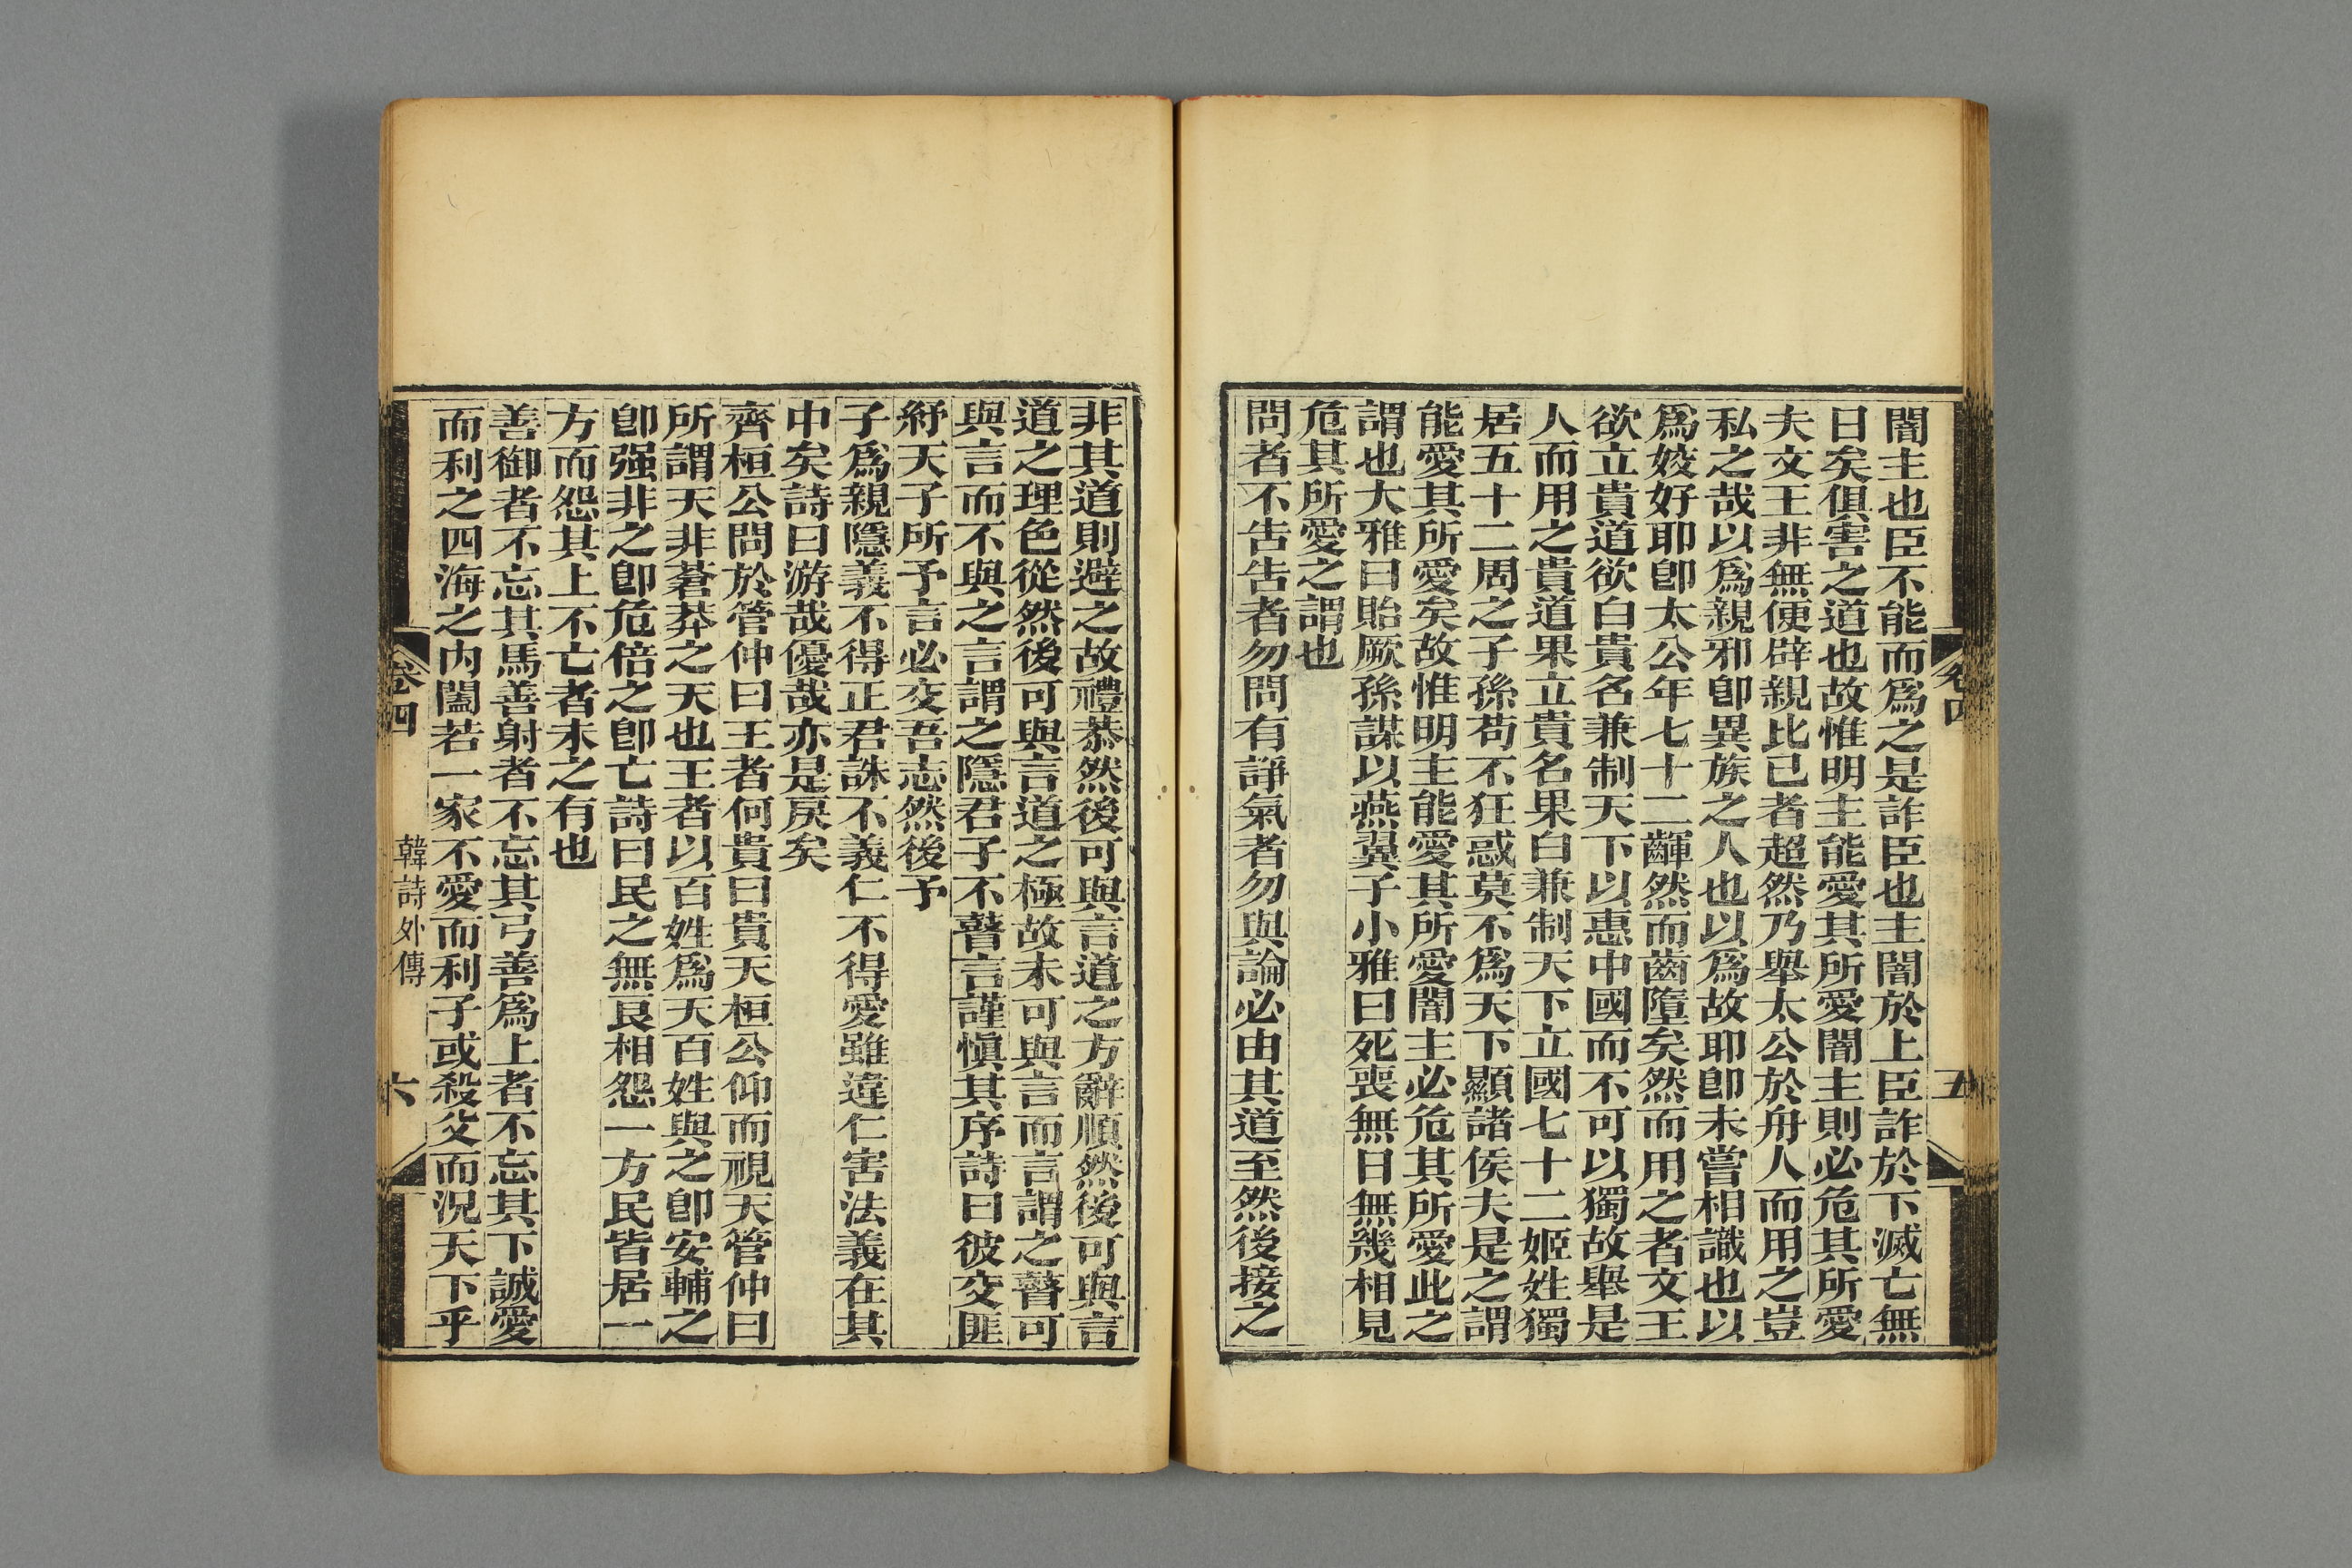 闇主也臣不能而爲之是詐臣也主闇於上臣詐於下滅亡無
日矣俱害之道也故惟明主能愛其所愛闇主則必危其所愛
夫文王非無便辟親比己者超然乃舉太公於舟人而用之豈
私之哉以爲親邪卽異族之人也以爲故耶卽未嘗相識也以
爲姣好耶卽太公年七十二齳然而齒墮矣然而用之者文王
欲立貴道欲白貴名兼制天下以惠中國而不可以獨故舉是
人而用之貴道果立貴名果白兼制天下立國七十二姬姓獨
居五十二周之子孫苟不狂惑莫不爲天下顯諸侯夫是之謂
能愛其所愛矣故惟明主能愛其所愛闇主必危其所愛此之
謂也大雅曰貽厥孫謀以燕翼子小雅曰死喪無日無幾相見
危其所愛之謂也
問者不告告者勿問有諍氣者勿與論必由其道至然後接之
卷四
五
非其道則避之故禮恭然後可與言道之方辭順然後可與言
道之理色從然後可與言道之極故未可與言而言謂之瞽可
與言而不與之言謂之隱君子不瞽言謹慎其序詩曰彼交匪
紓天子所予言必交吾志然後予
子爲親隱義不得正君誅不義仁不得愛雖違仁害法義在其
中矣詩曰游哉優哉亦是戾矣
齊桓公問於管仲曰王者何貴曰貴天桓公仰而視天管仲曰
所謂天非蒼莽之天也王者以百姓爲天百姓與之卽安輔之
卽强非之卽危倍之卽亡詩曰民之無良相怨一方民皆居一
方而怨其上不亡者未之有也
善御者不忘其馬善射者不忘其弓善爲上者不忘其下誠愛
而利之四海之內闔若一家不愛而利子或殺父而況天下乎
卷四
韓詩外傳
六